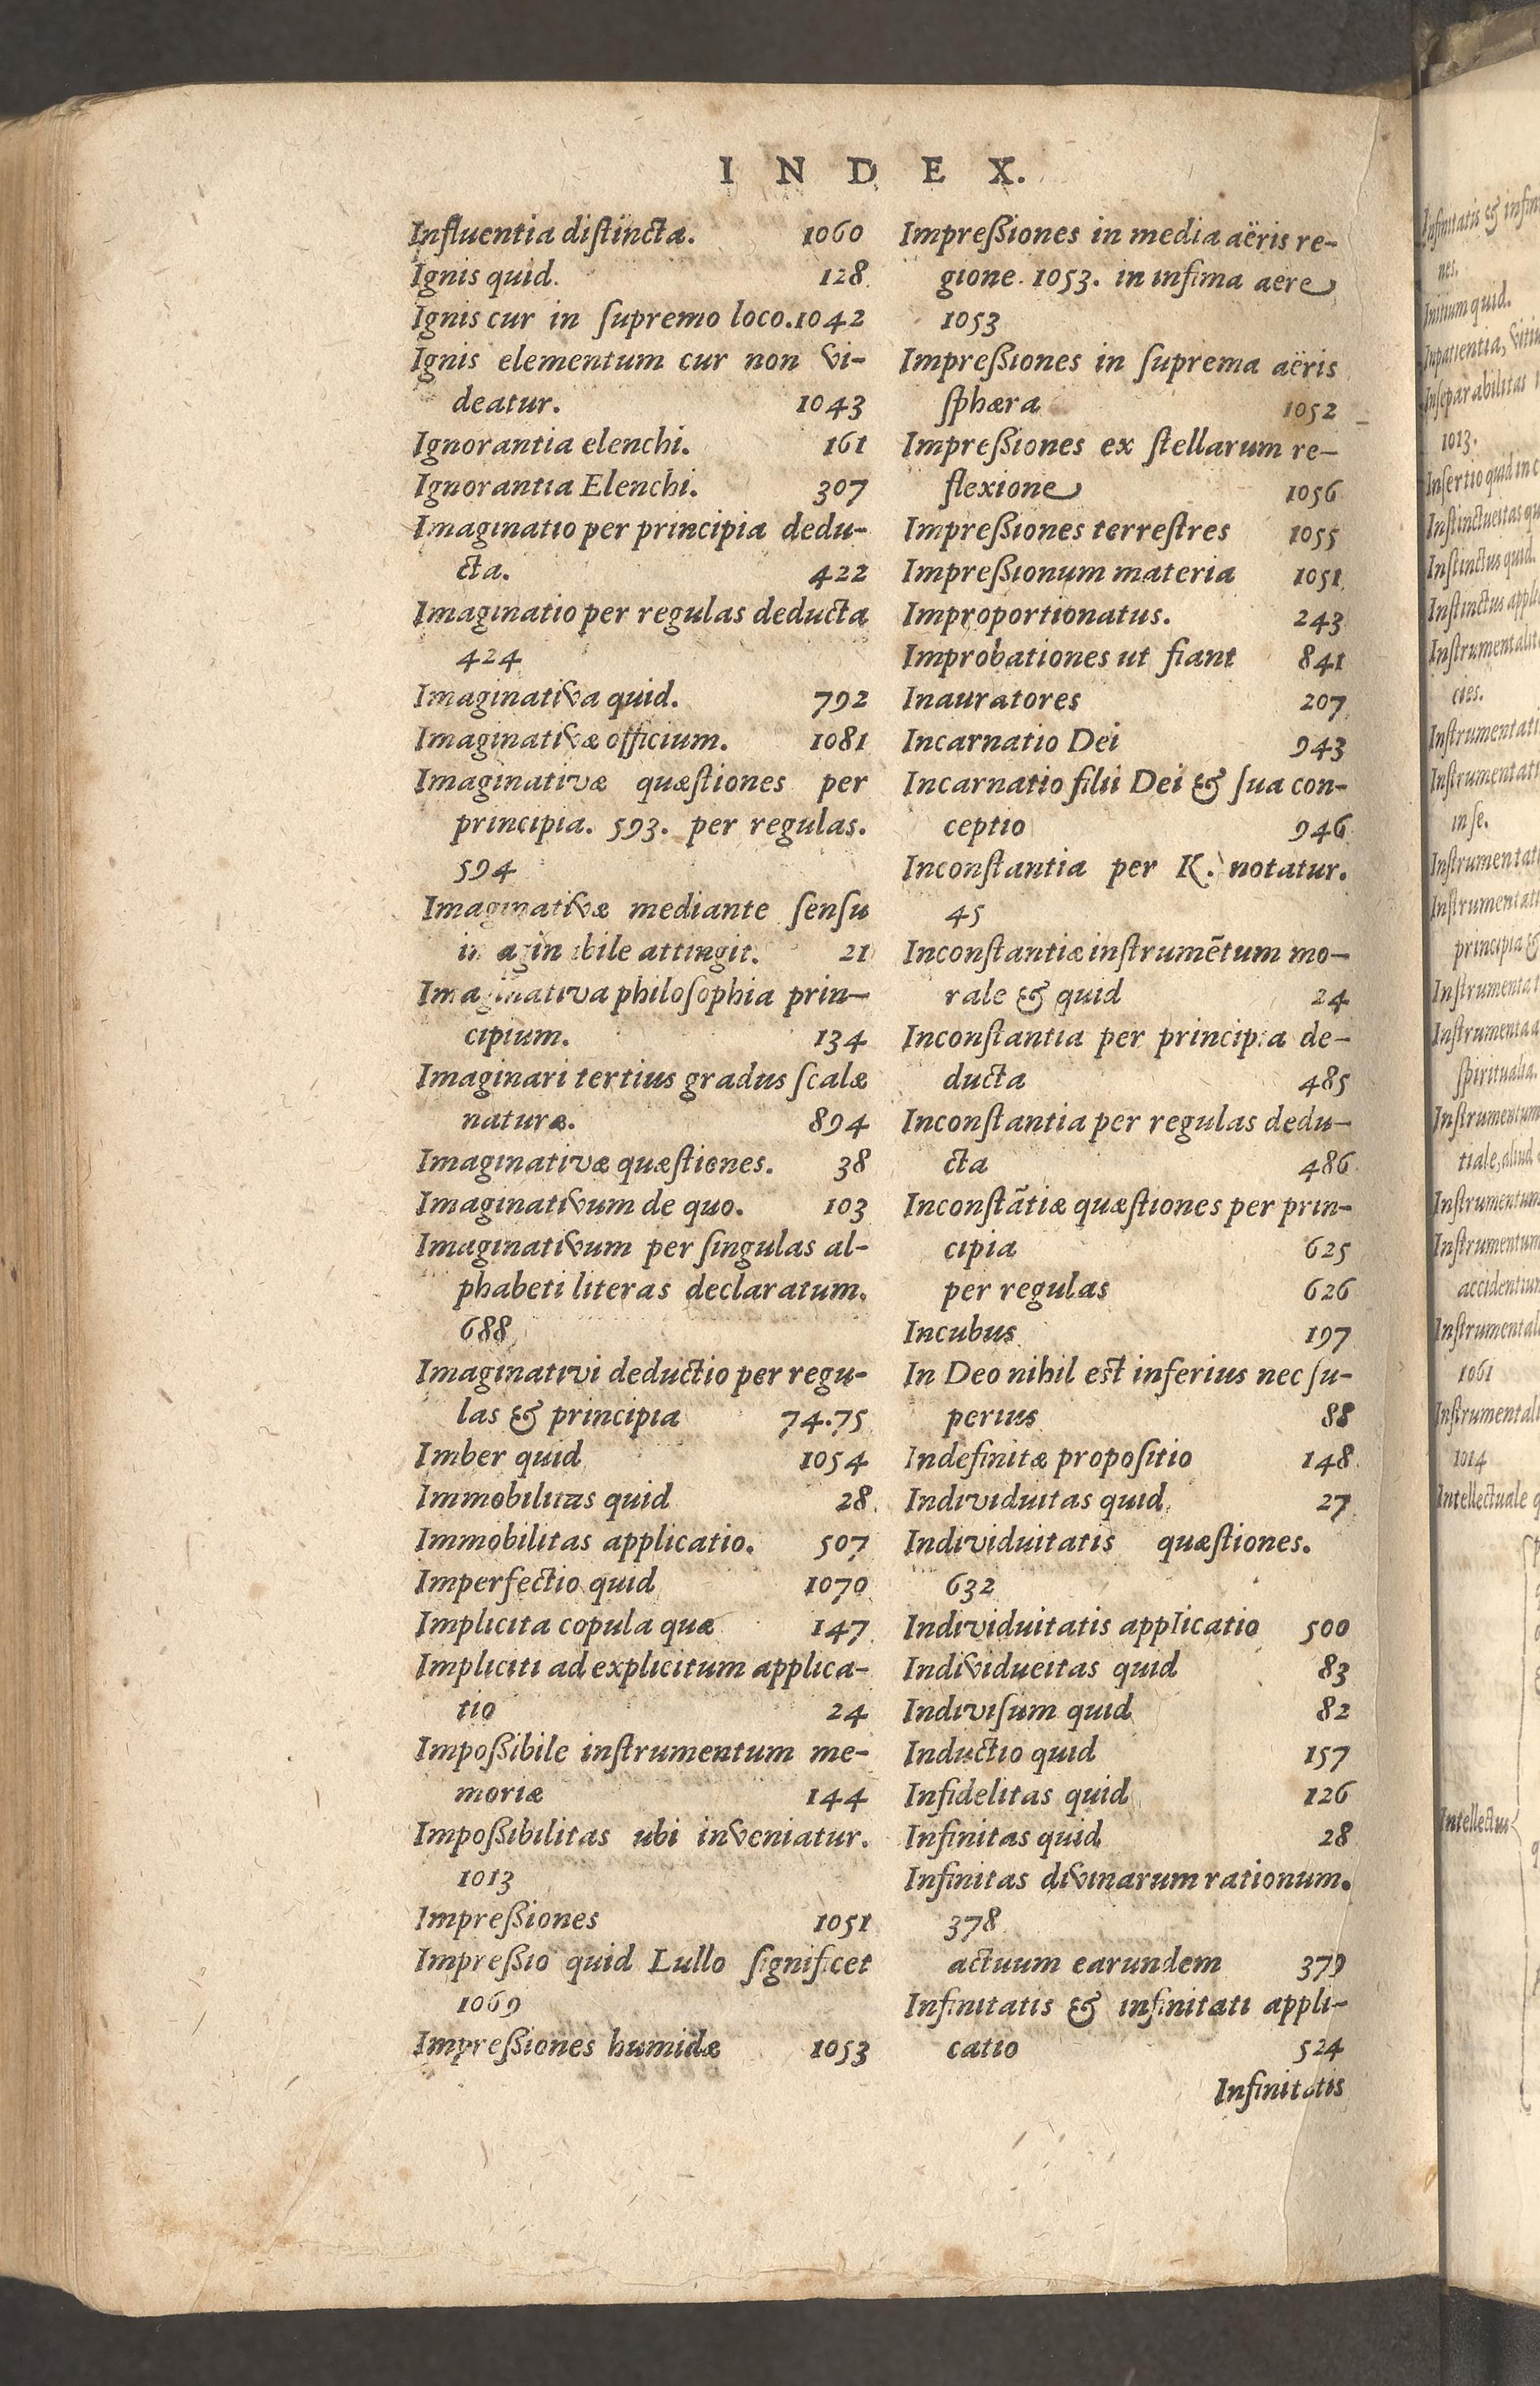 INDEX.
Influentia distincta. 1060
Ignis quid. 128
Ignis cur in ſupremo loco. 1042
Ignis elementum cur non vi-
deatur. 1043
Ignorantia elenchi. 161
Ignorantia Elenchi. 307
Imaginatio per principia dedu-
cta. 422
Imaginatio per regulas deducta
424
Imaginativa quid. 792
Imaginativæ officium. 1081
Imaginativæ quæſtiones per
principia. 593. per regulas.
594
Imaginativæ mediante ſenſu
attingit. 21
Imaginativa philoſophia prin-
cipium. 134
Imaginari tertius gradus ſcalæ
naturæ. 894
Imaginativæ quæſtiones. 38
Imaginativum de quo. 103
Imaginativum per ſingulas al-
phabeti literas declaratum.
688
Imaginativi deductio per regu-
las & principia 74.75
Imber quid 1054
Immobilitas quid 28
Immobilitas applicatio. 507
Imperfectio quid 1070
Implicita copula quæ 147
Impliciti ad explicitum applica-
tio 24
Impoßibile inſtrumentum me-
moriæ 144
Impoßibilitas ubi inveniatur.
1013
Impreßiones 1051
Impreßio quid Lullo ſignificet
1069
Impreßiones humidæ 1053
Impreßiones in media aëris re-
gione. 1053. in infima aere
1053
Impreßiones in ſuprema aëris
ſphæra 1052
Impreßiones ex ſtellarum re-
flexione 1056
Impreßiones terreſtres 1055
Impreßionum materia 1051
Improportionatus. 243
Improbationes ut fiant 841
Inauratores 207
Incarnatio Dei 943
Incarnatio filii Dei & ſua con-
ceptio 946
Inconſtantia per K. notatur.
45
Inconſtantiæ inſtrumētum mo-
rale & quid 24
Inconſtantia per principia de-
ducta 485
Inconſtantia per regulas dedu-
cta 486
Inconſtātiæ quæſtiones per prin-
cipia 625
per regulas 626
Incubus 197
In Deo nihil eſt inferius nec ſu-
perius 88
Indefinitæ propoſitio 148
Individuitas quid 27
Individuitatis quæſtiones.
632
Individuitatis applicatio 500
Individueitas quid 83
Indiviſum quid 82
Inductio quid 157
Infidelitas quid 126
Infinitas quid 28
Infinitas divinarum rationum.
378
actuum earundem 379
Infinitatis & infinitati appli-
catio 524
Infinitatis
nes.
Initium quid.
1013.
Inſtinctus quid.
cies.
in ſe.
ſpiritualia.
1061
1014
Intellectuale
Intellectus